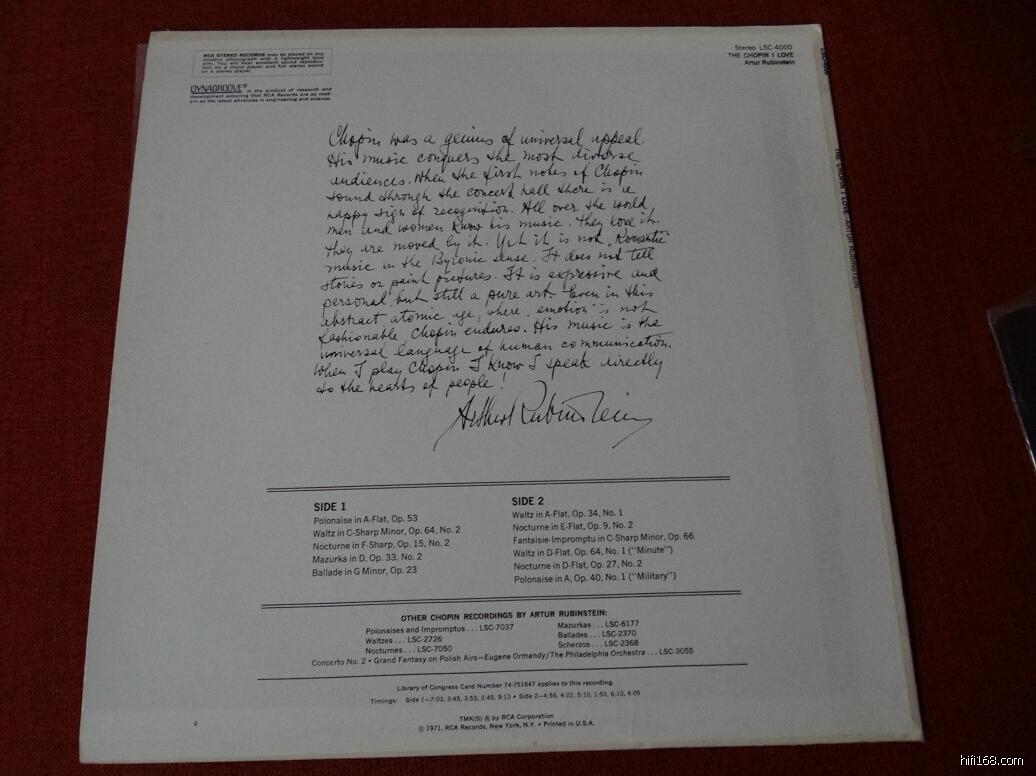 RCA STEREO RECORDS may be played on any
modern phonograph with a lightweight tone
arm. You will hear excellent sound reproduc-
tion on a mono player and full stereo sound
on a stereo player.
DYNAGROOVE® is the product of research and
development assuring that RCA Records are as mod-
ern as the latest advances in engineering and science.
Stereo LSC-4000
THE CHOPIN I LOVE
Artur Rubinstein
Chopin was a genius of universal appeal.
His music conquers the most diverse
audiences. When the first notes of Chopin
sound through the concert hall there is a
happy sign of recognition. All over the world
men and women know his music. They love it.
They are moved by it. Yet it is not "Romantic"
music in the Byronic sense. It does not tell
stories or paint pictures. It is expressive and
personal, but still a pure art. Even in this
abstract atomic age, where "emotion" is not
fashionable, Chopin endures. His music is the
universal language of human communication.
When I play Chopin I know I speak directly
to the hearts of people!
Arthur Rubinstein
SIDE 1
Polonaise in A-Flat, Op. 53
Waltz in C-Sharp Minor, Op. 64, No. 2
Nocturne in F-Sharp, Op. 15, No. 2
Mazurka in D, Op. 33, No. 2
Ballade in G Minor, Op. 23
SIDE 2
Waltz in A-Flat, Op. 34, No. 1
Nocturne in E-Flat, Op. 9, No. 2
Fantaisie-Impromptu in C-Sharp Minor, Op. 66
Waltz in D-Flat, Op. 64, No. 1 ("Minute")
Nocturne in D-Flat, Op. 27, No. 2
Polonaise in A, Op. 40, No. 1 ("Military")
OTHER CHOPIN RECORDINGS BY ARTUR RUBINSTEIN:
Polonaises and Impromptus . . . LSC-7037
Waltzes . . . LSC-2726
Nocturnes . . . LSC-7050
Mazurkas . . . LSC-6177
Ballades . . . LSC-2370
Scherzos . . . LSC-2368
Concerto No. 2 • Grand Fantasy on Polish Airs—Eugene Ormandy/The Philadelphia Orchestra . . . LSC-3055
Library of Congress Card Number 74-751647 applies to this recording.
Timings: Side 1—7:03, 3:45, 3:53, 2:45, 9:13 • Side 2—4:56, 4:22, 5:10, 1:50, 6:10, 4:05
TMK(S) ® by RCA Corporation
© 1971, RCA Records, New York, N.Y. • Printed in U.S.A.
THE CHOPIN I LOVE ARTUR RUBINSTEIN
hifi168.com